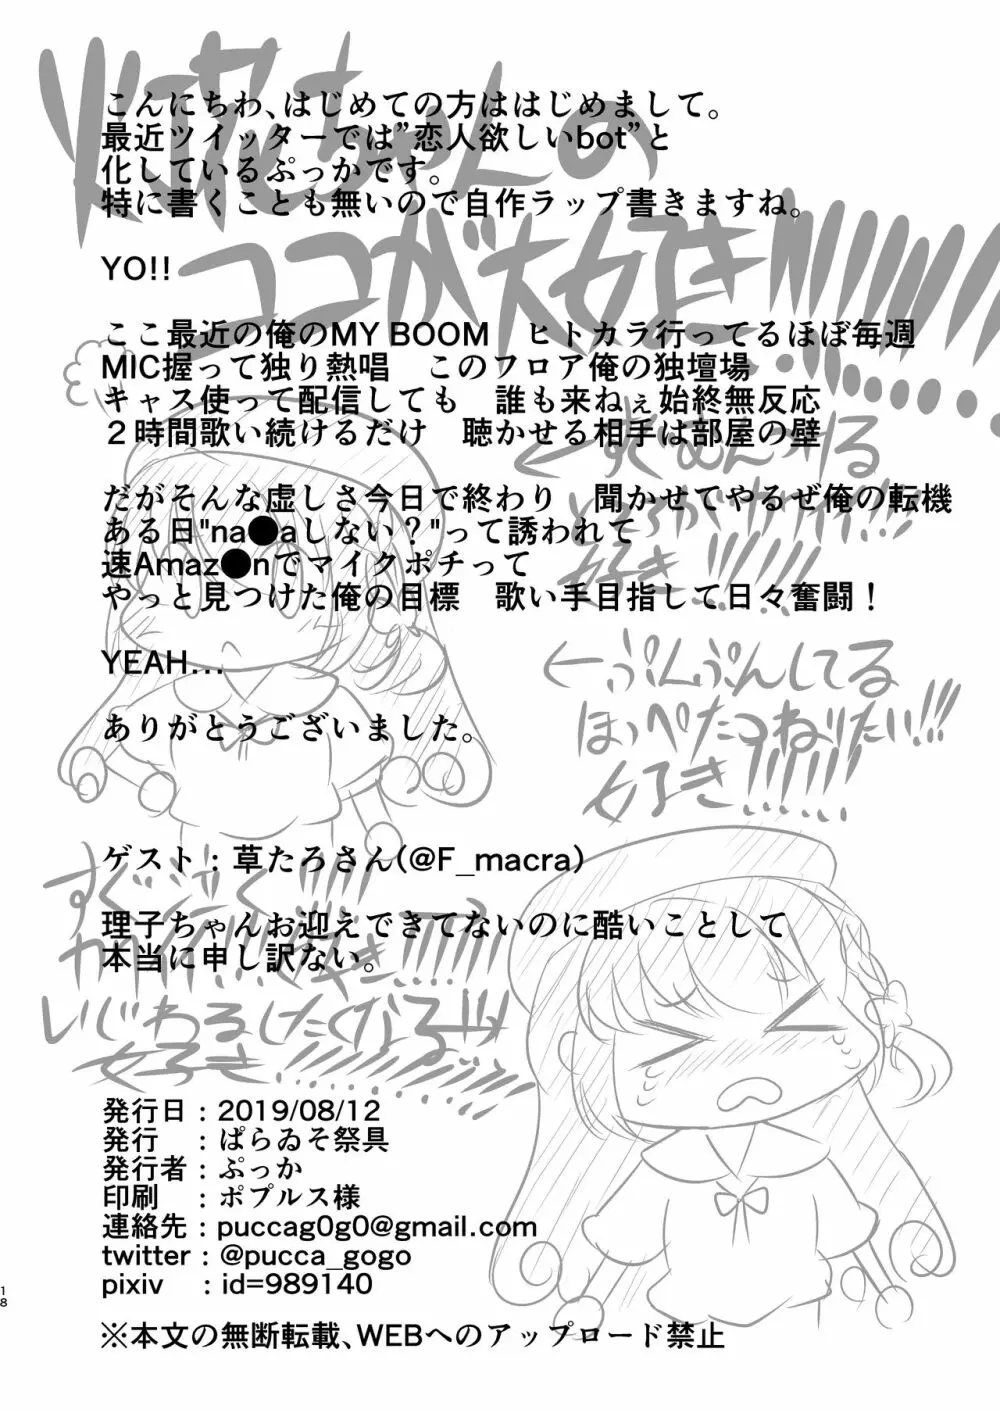 火花ちゃんの
ココが大好き!!!!!!!!!!
こんにちわ、はじめての方ははじめまして。
最近ツイッターでは”恋人欲しいbot”と
化しているぷっかです。
特に書くことも無いので自作ラップ書きますね。
YO!!
ここ最近の俺のMY BOOM　ヒトカラ行ってるほぼ毎週
MIC握って独り熱唱　このフロア俺の独壇場
キャス使って配信しても　誰も来ねぇ始終無反応
２時間歌い続けるだけ　聴かせる相手は部屋の壁
だがそんな虚しさ今日で終わり　聞かせてやるぜ俺の転機
ある日"na●aしない？"って誘われて
速Amaz●nでマイクポチって
やっと見つけた俺の目標　歌い手目指して日々奮闘！
YEAH...
ありがとうございました。
←すぐむくれる
好き!!!!!!
←ぷんぷんしてる
ほっぺたつねりたい!!!
好き!!!!!!
ゲスト：草たろさん(@F_macra)
理子ちゃんお迎えできてないのに酷いことして
本当に申し訳ない。
いじわるしたくなるーッッ
好き
発行日：2019/08/12
発行　：ぱらゐそ祭具
発行者：ぷっか
印刷　：ポプルス様
連絡先：puccag0g0@gmail.com
twitter：@pucca_gogo
pixiv　：id=989140
※本文の無断転載、WEBへのアップロード禁止
18